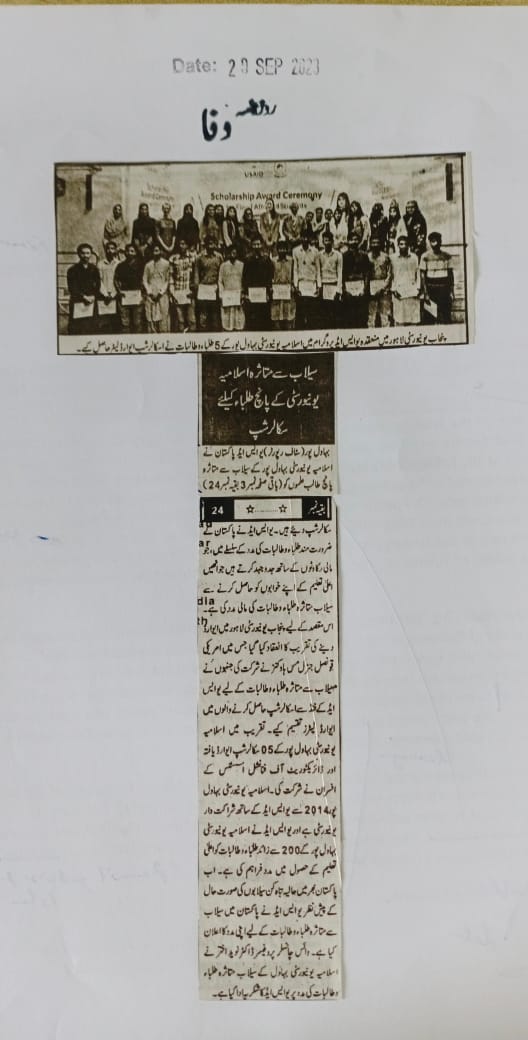 Date: 29 SEP 2023
روزنامہ وفا
USAID
Scholarship Award Ceremony
پنجاب یونیورسٹی لاہور میں منعقدہ یو ایس ایڈ پروگرام میں اسلامیہ یونیورسٹی بہاول پور کے 5 طلباء و طالبات نے اسکالرشپ ایوارڈ لیٹر حاصل کیے۔
سیلاب سے متاثرہ اسلامیہ
یونیورسٹی کے پانچ طلباء کیلئے
سکالرشپ
بہاول پور (سٹاف رپورٹر) یو ایس ایڈ پاکستان نے
اسلامیہ یونیورسٹی بہاول پور کے سیلاب سے متاثرہ
پانچ طالب علموں کو (باقی صفحہ نمبر 3 بقیہ نمبر 24)
بقیہ نمبر ☆.........☆ 24
سکالرشپ دیئے ہیں۔ یو ایس ایڈ نے پاکستان کے
ضرورت مند طلباء و طالبات کی مدد کے سلسلے میں، جو
مالی رکاوٹوں کے ساتھ جدوجہد کرتے ہیں جو انھیں
اعلیٰ تعلیم کے اپنے خوابوں کو حاصل کرنے سے
سیلاب متاثرہ طلباء و طالبات کی مالی مدد کی ہے۔
اس مقصد کے لیے پنجاب یونیورسٹی لاہور میں ایوارڈ
دینے کی تقریب کا انعقاد کیا گیا جس میں امریکی
قونصل جنرل مس ہاکنز نے شرکت کی جنہوں نے
سیلاب سے متاثرہ طلباء و طالبات کے لیے یو ایس
ایڈ کے فنڈ سے اسکالرشپ حاصل کرنے والوں میں
ایوارڈ لیٹرز تقسیم کیے۔ تقریب میں اسلامیہ
یونیورسٹی بہاول پور کے 05 سکالرشپ ایوارڈ یافتہ
اور ڈائریکٹوریٹ آف فنانشل اسسٹنس کے
افسران نے شرکت کی۔ اسلامیہ یونیورسٹی بہاول
پور 2014 سے یو ایس ایڈ کے ساتھ شراکت دار
یونیورسٹی ہے اور یو ایس ایڈ نے اسلامیہ یونیورسٹی
بہاول پور کے 200 سے زائد طلباء و طالبات کو اعلیٰ
تعلیم کے حصول میں مدد فراہم کی ہے۔ اب
پاکستان بھر میں حالیہ تباہ کن سیلابوں کی صورت حال
کے پیش نظر یو ایس ایڈ نے پاکستان میں سیلاب
سے متاثرہ طلباء و طالبات کے لیے اپنی مدد کا اعلان
کیا ہے۔ وائس چانسلر پروفیسر ڈاکٹر نوید اختر نے
اسلامیہ یونیورسٹی بہاول کے سیلاب متاثرہ طلباء
و طالبات کی مدد پر یو ایس ایڈ کا شکریہ ادا کیا ہے۔